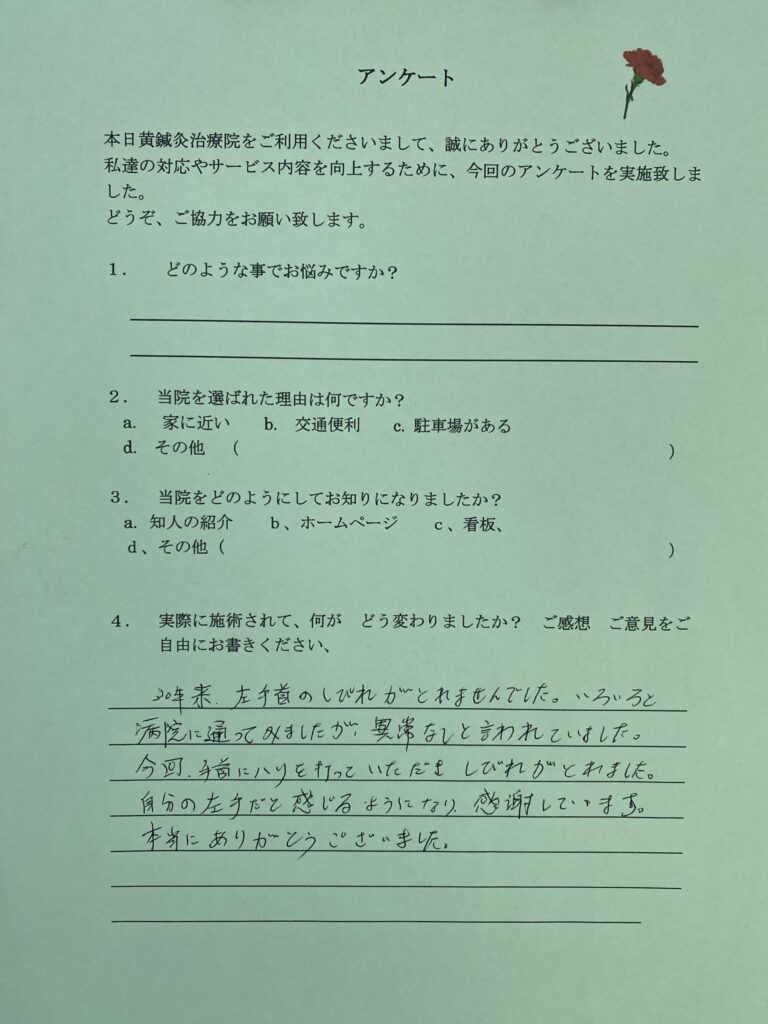 アンケート
本日黄鍼灸治療院をご利用くださいまして、誠にありがとうございました。
私達の対応やサービス内容を向上するために、今回のアンケートを実施致しま
した。
どうぞ、ご協力をお願い致します。
1. どのような事でお悩みですか？
2. 当院を選ばれた理由は何ですか？
a. 家に近い b. 交通便利 c. 駐車場がある
d. その他 ( )
3. 当院をどのようにしてお知りになりましたか？
a. 知人の紹介 b、ホームページ c、看板、
d、その他 ( )
4. 実際に施術されて、何が どう変わりましたか？ ご感想 ご意見をご
自由にお書きください、
20年来、左手首のしびれがとれませんでした。いろいろと
病院に通ってみましたが、異常なしと言われていました。
今回、手首にハリを打っていただき しびれがとれました。
自分の左手だと感じるようになり、感謝しています。
本当にありがとうございました。